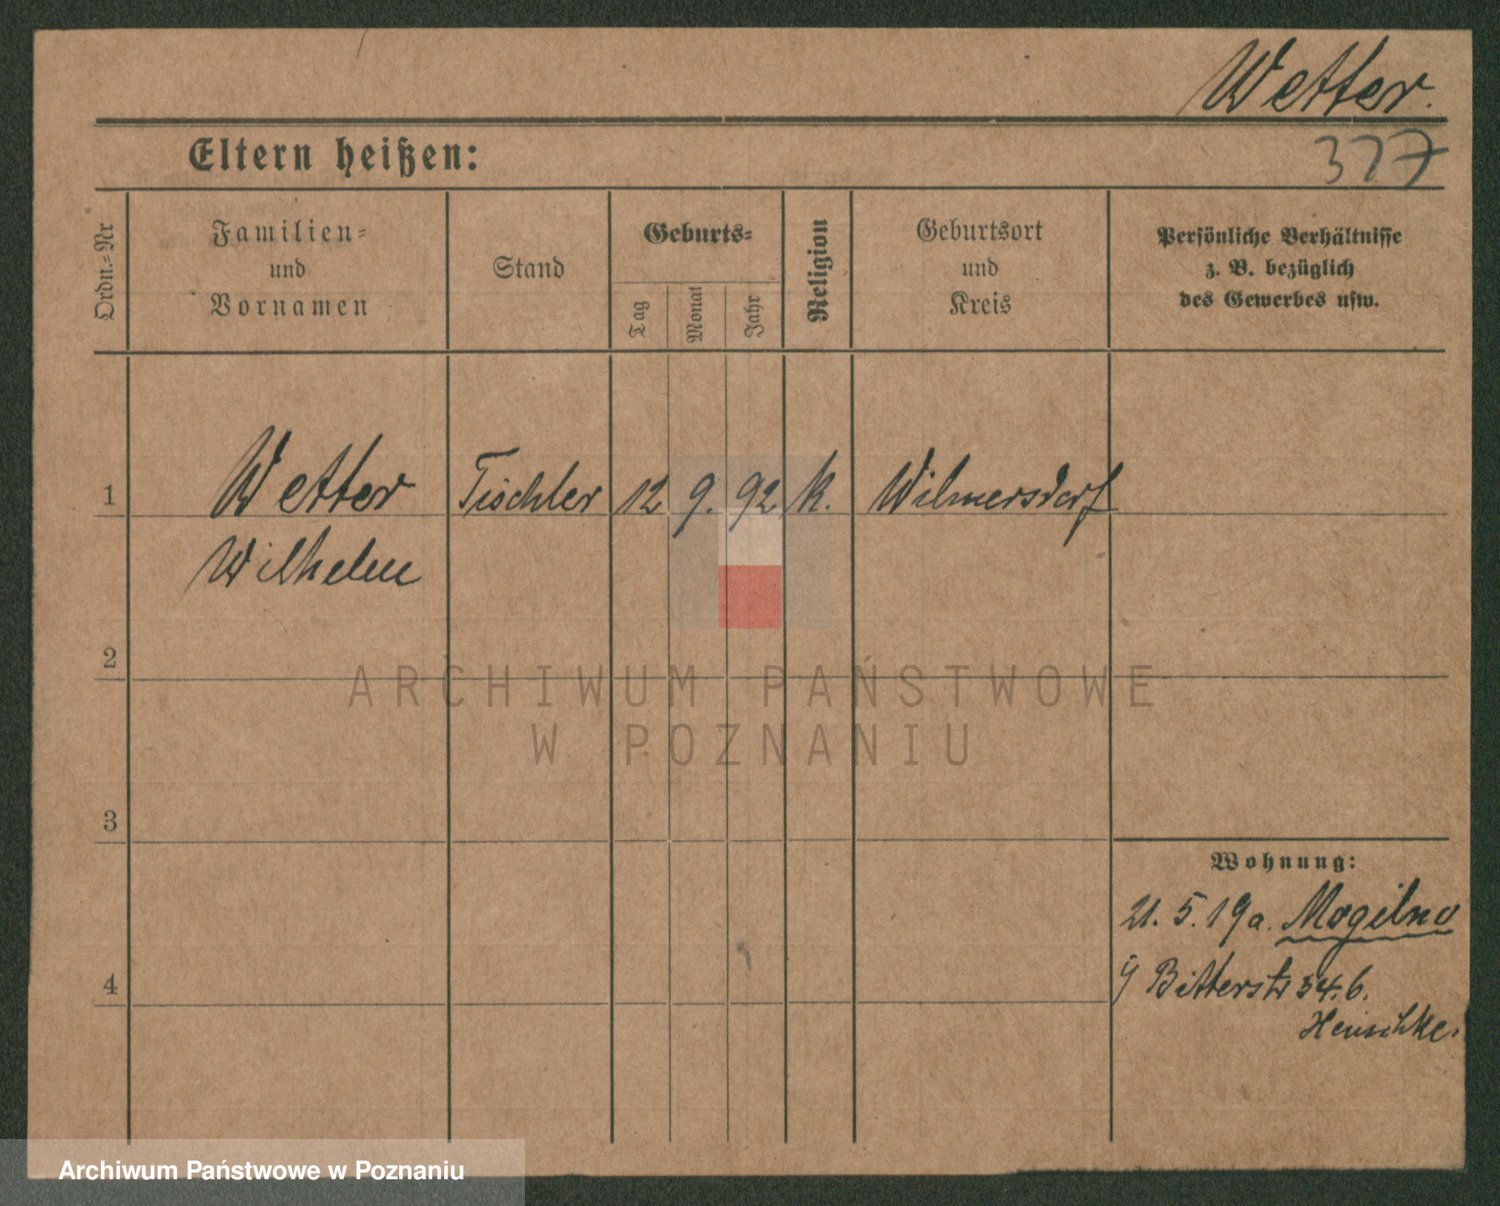 Wetter.
Eltern heißen:
377
Ordn.=Nr
Familien=
und
Vornamen
Stand
Geburts=
Tag
Monat
Jahr
Religion
Geburtsort
und
Kreis
Persönliche Verhältnisse
z. B. bezüglich
des Gewerbes usw.
1
Wetter Tischler 12 9. 92 K. Wilmersdorf
Wilhelm
2
ARCHIWUM PAŃSTWOWE
W POZNANIU
3
Wohnung:
21. 5. 19 a. Mogilno
Bitterstr 34. 6.
4
Archiwum Państwowe w Poznaniu